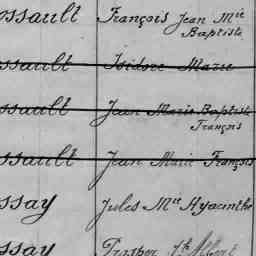 ossault François Jean Mie
Baptiste
ssault Isidore Marie
ssault Jean Marie Baptiste
François
ssault Jean Marie François
ssay Jules Mie Hyacinthe
ssay Prosper Jh Albert